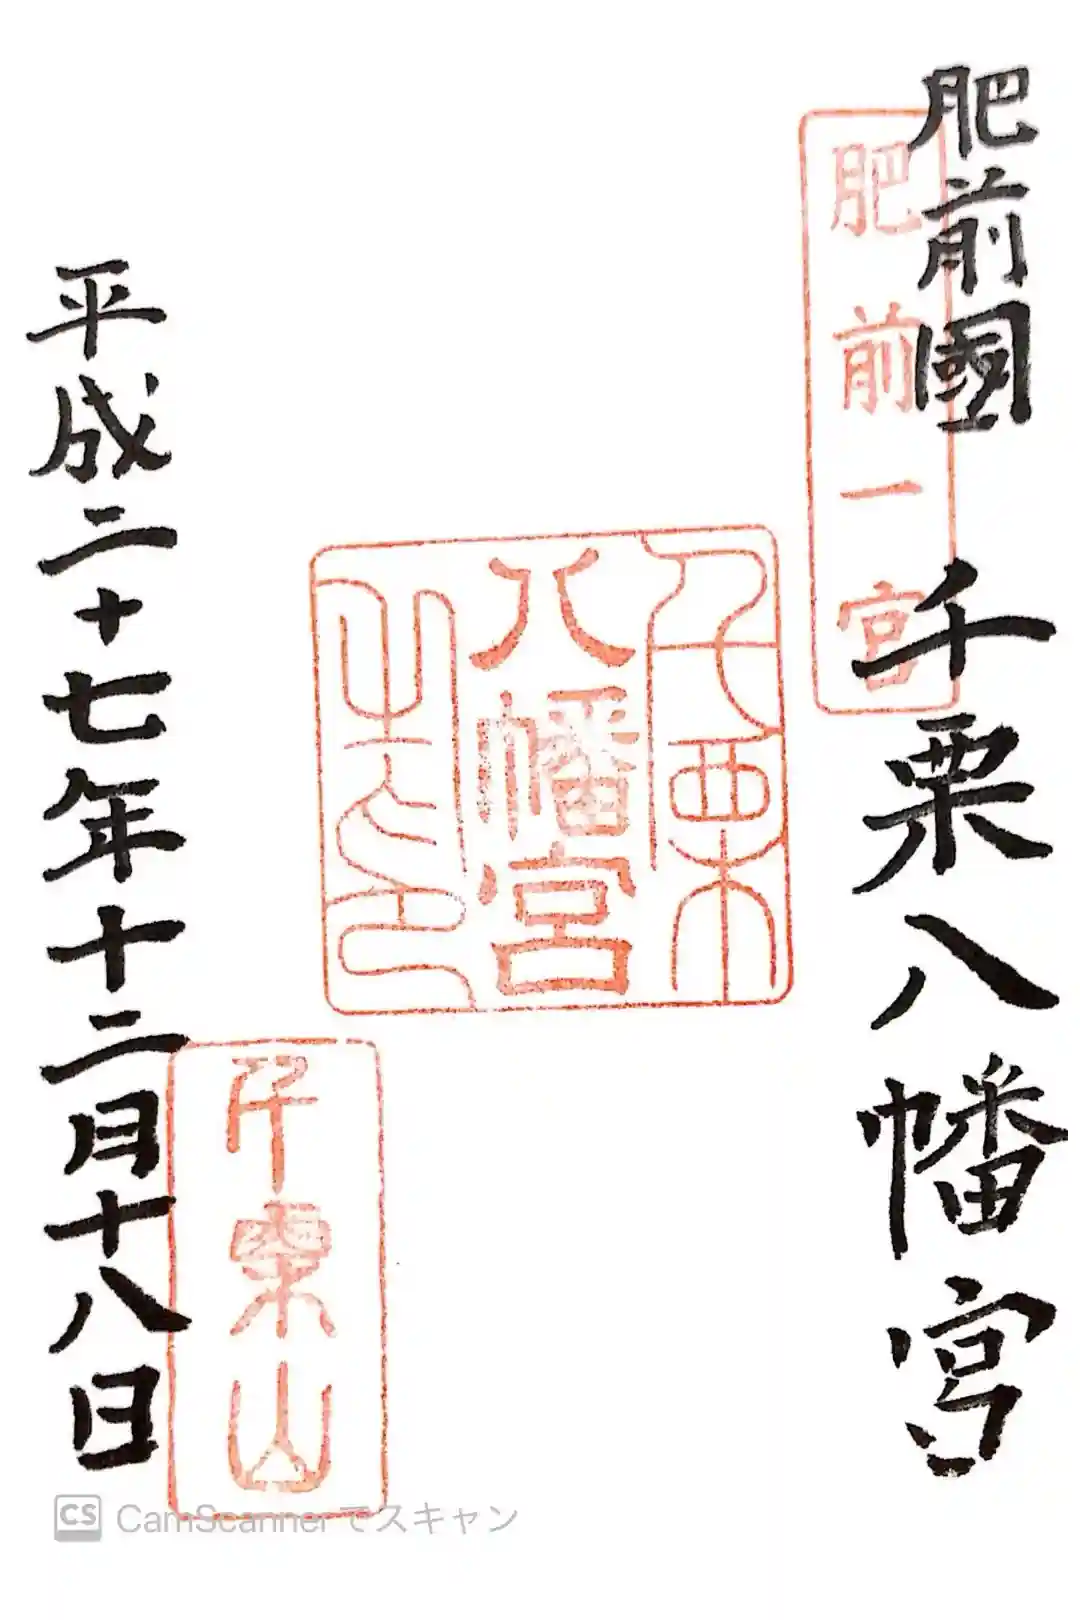 肥前國 千栗八幡宮
肥前一宮
千栗
八幡宮
之印
千栗山
平成二十七年十二月十八日
CS CamScanner でスキャン